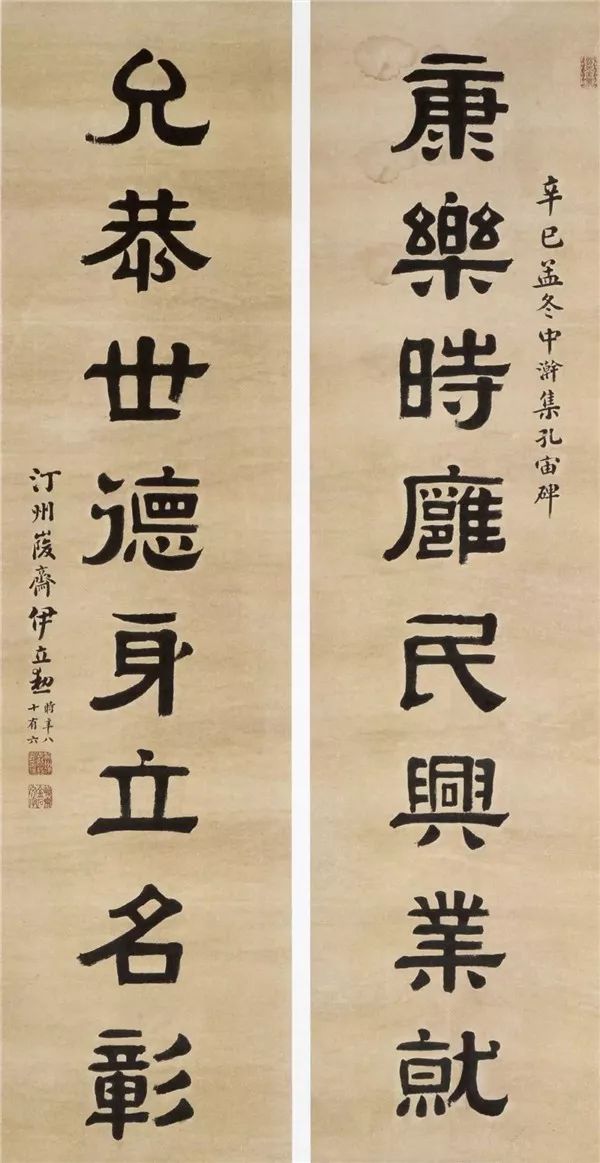 辛巳孟冬中澣集孔宙碑
康樂時廱民興業就
允恭世德身立名彰
汀州峻齋伊立勳
時年八
十有六